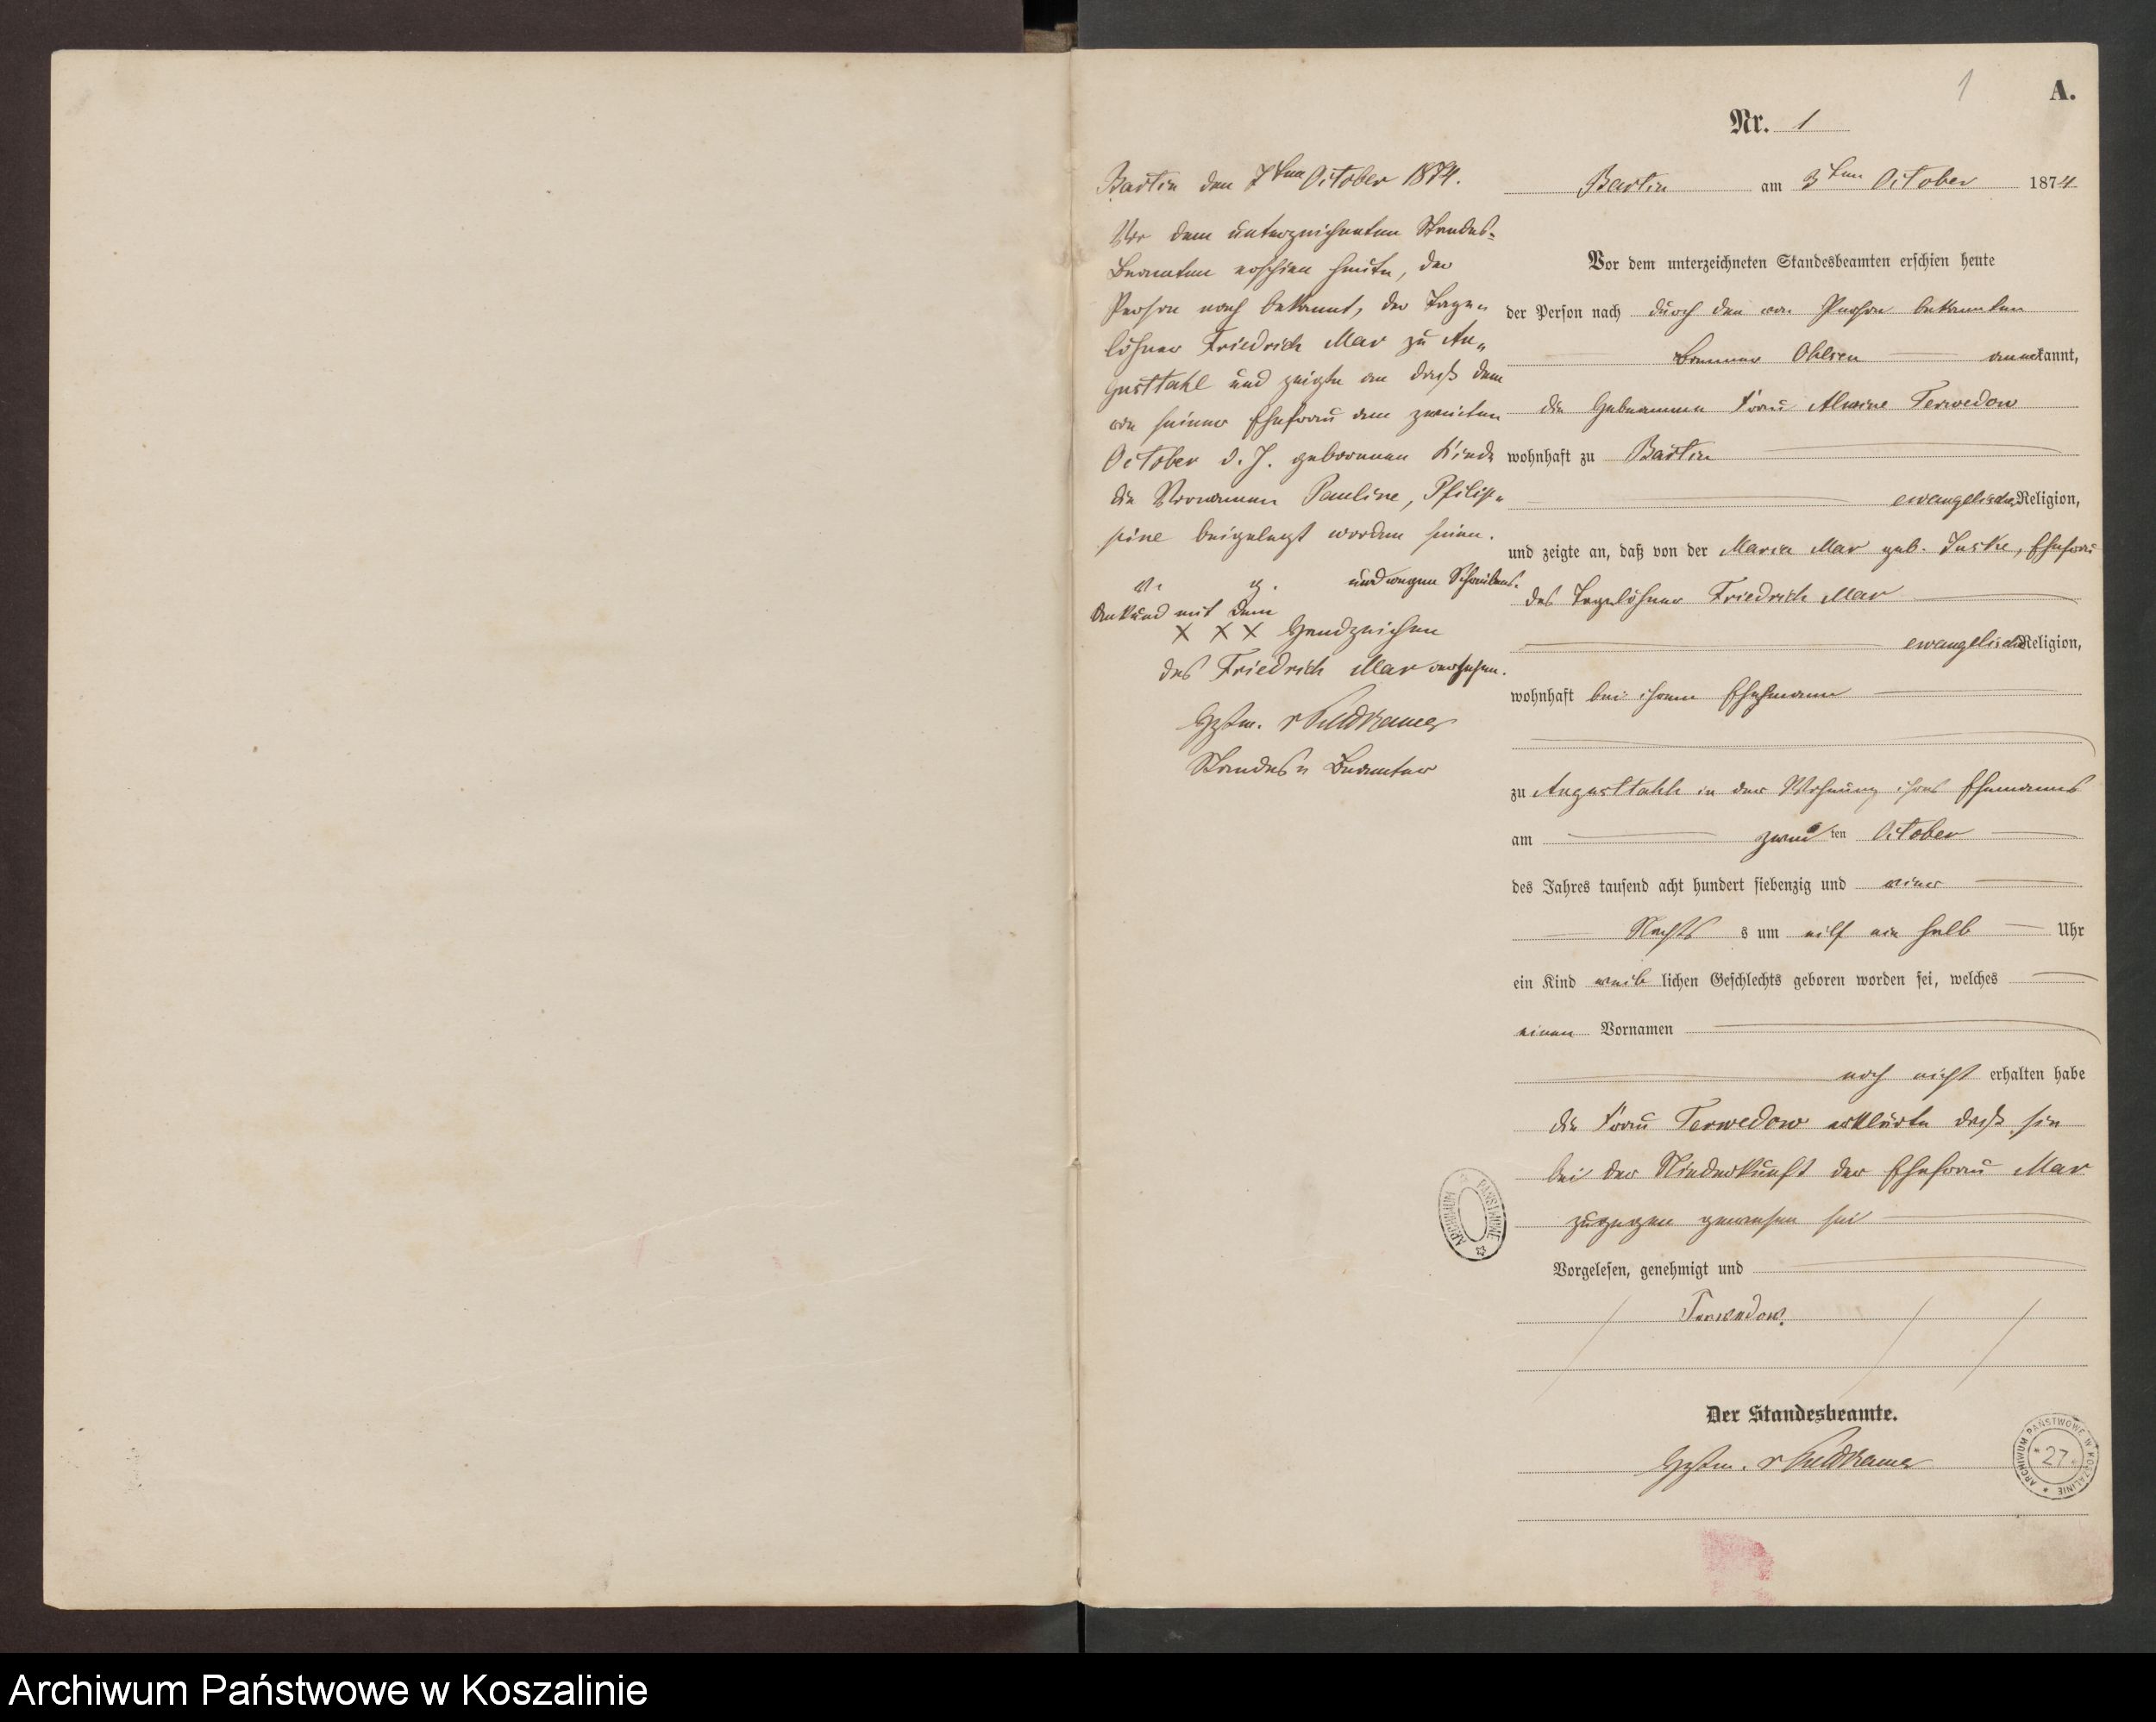 1
A.
Nr. 1
Bartin den 7ten October 1874.
Vor dem unterzeichneten Standes-
Beamten erschien heute, der
Person nach bekannt, der Tage„
löhner Friedrich Mar zu Au„
gusttahl und zeigte an daß dem
von seiner Ehefrau am zweiten
October d. J. geborenen Kinde
die Vornamen Pauline, Philip„
pine beigelegt worden seien.
v. g. und wegen Schreibens-
unkund mit dem
X X X Handzeichen
des Friedrich Mar versehen.
Hptm.
Standes„ Beamter
Bartin am 3ten October 1874
Vor dem unterzeichneten Standesbeamten erschien heute
der Person nach durch den von Person bekannten
Ohlsen anerkannt,
die Hebeamme Frau Alwine Terwedow
wohnhaft zu Bartin
ewangelischer Religion,
und zeigte an, daß von der Maria Mar geb. Juske, Ehefrau
des Tagelöhner Friedrich Mar
ewangelischer Religion,
wohnhaft bei ihrem Ehemann
zu Augusttahl in der Wohnung ihres Ehemanns
am zwei ten October
des Jahres tausend acht hundert siebenzig und vier
Nachts s um elf ein halb Uhr
ein Kind weib lichen Geschlechts geboren worden sei, welches
einen Vornamen
noch nicht erhalten habe
die Frau Terwedow erklärte daß sie
bei der Niederkunft der Ehefrau Mar
zugegen gewesen sei
Vorgelesen, genehmigt und
Terwedow.
Der Standesbeamte.
Hptm.
ARCHIWUM PAŃSTWOWE
ARCHIWUM PAŃSTWOWE W KOSZALINIE
* 27 *
Archiwum Państwowe w Koszalinie